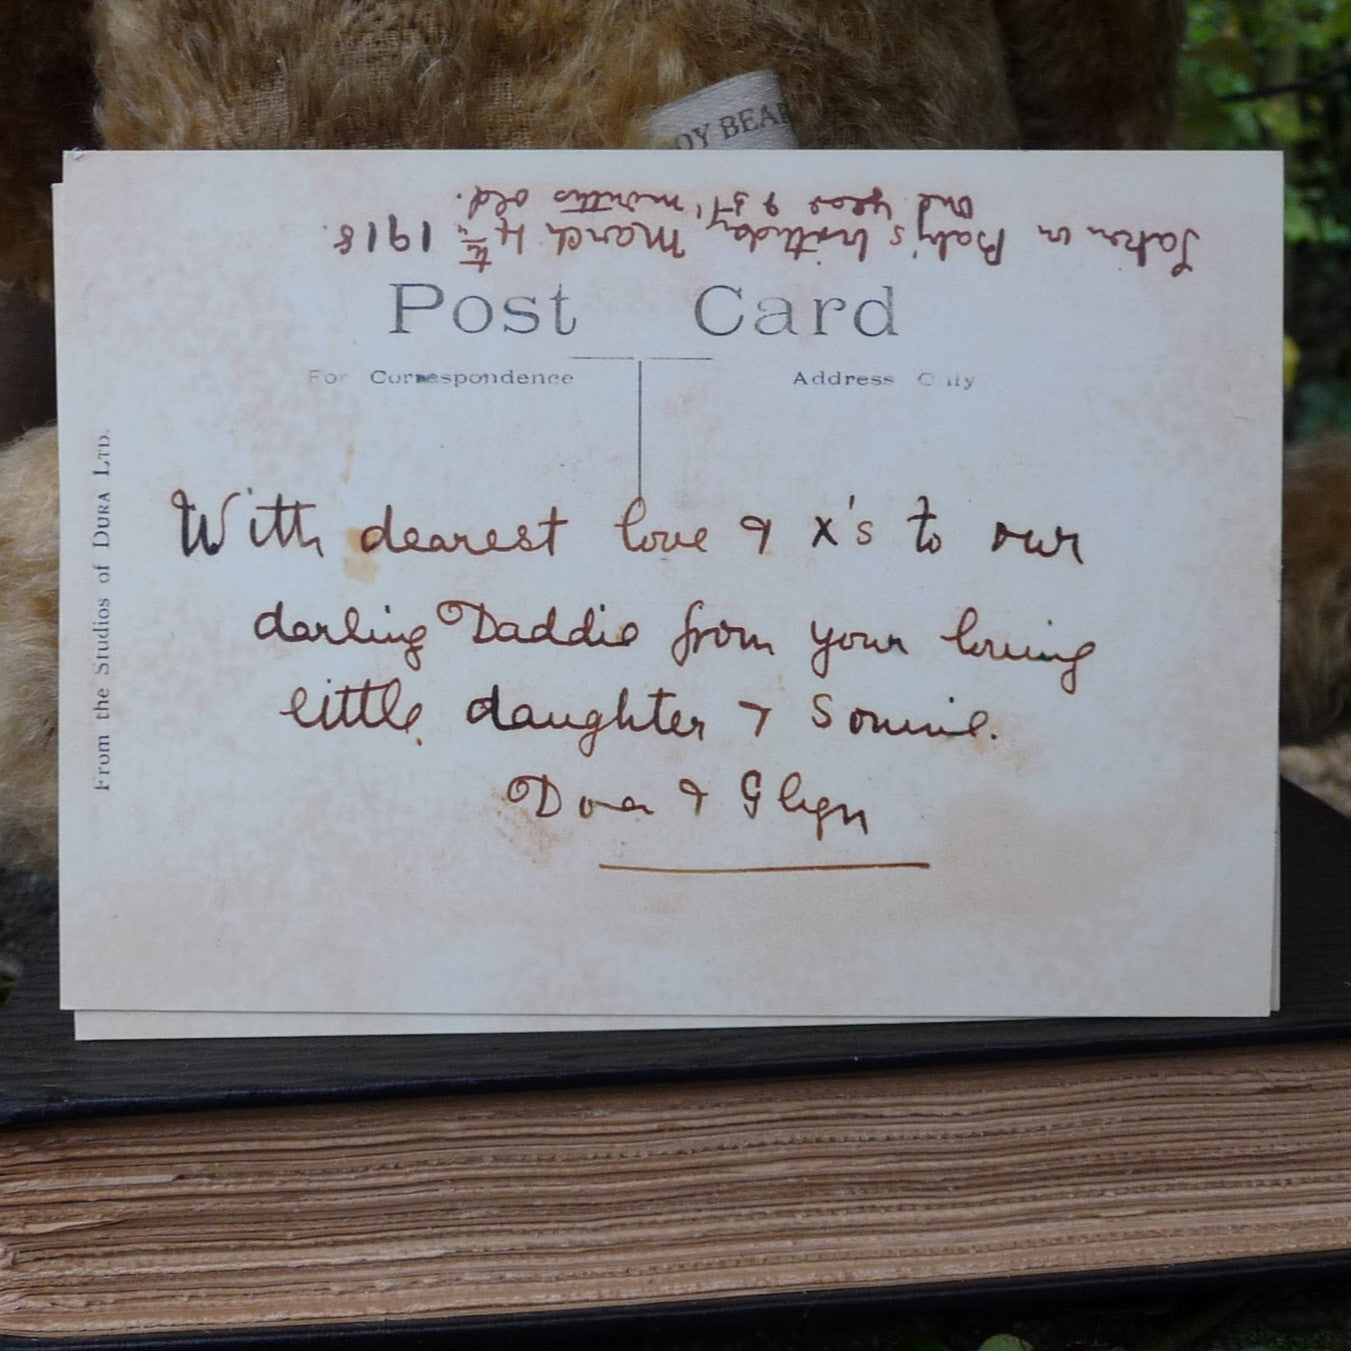 OY BEAR
Taken on Baby's birthday, March 4th, 1918.
One year & 5½ months old.
Post Card
For Correspondence
Address Only
From the Studios of DURA LTD.
With dearest love & x's to our
darling Daddie from your loving
little daughter & Sonnie.
Dora & Glyn